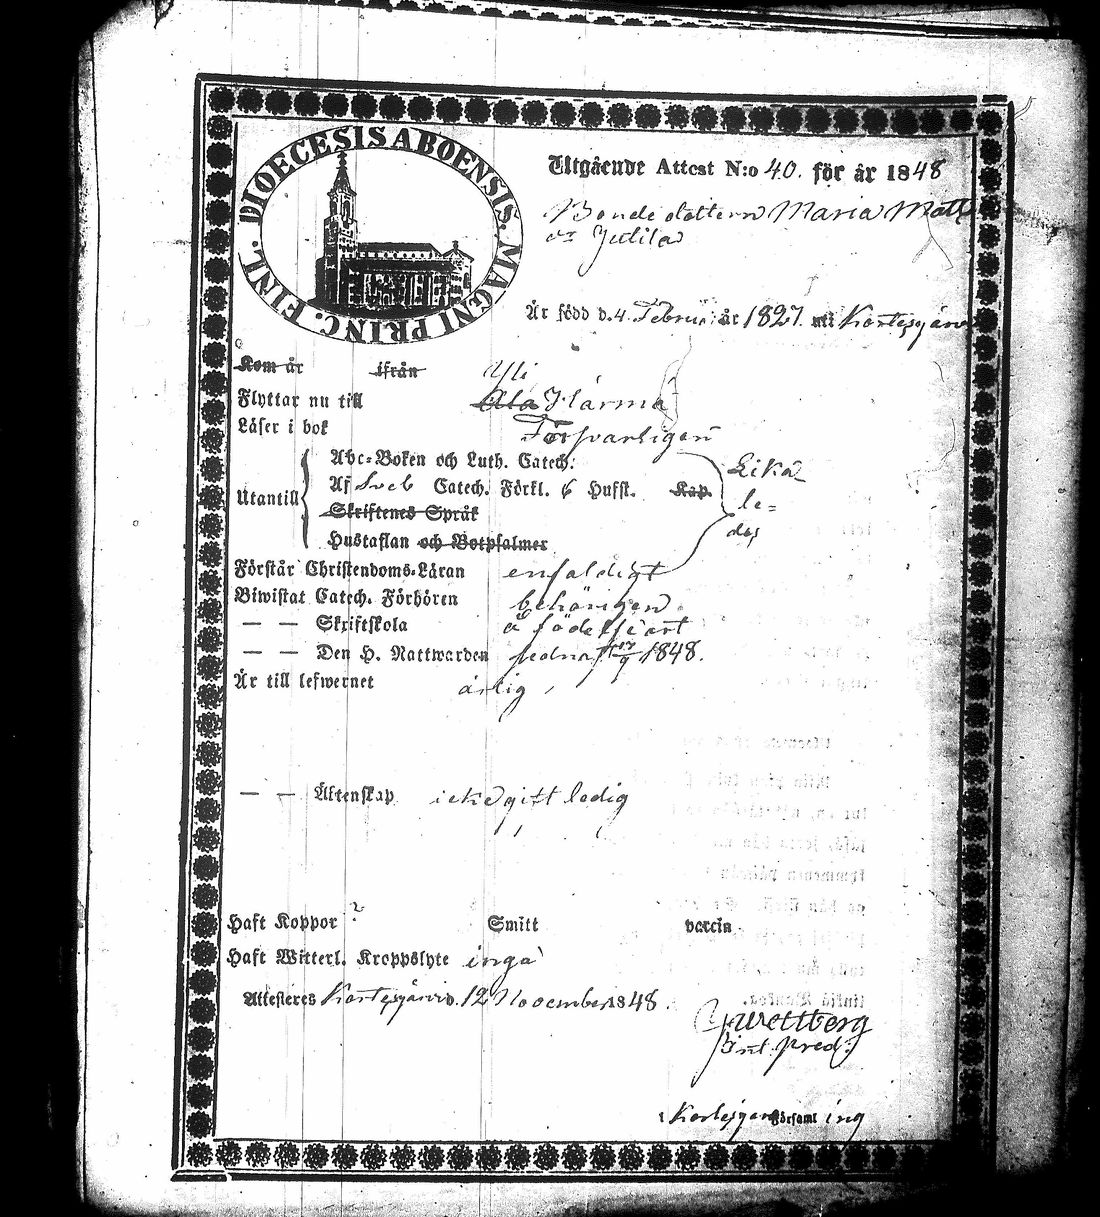 DIOECESIS ABOENSIS. MAGNI PRINC. FINL.
Utgående Attest N:o 40. för år 1848
Bonde dottern Maria Matts
dr Jutila
Är född d. 4 Februi år 1827. uti Kortesjärvi
Kom år ifrån
Yli
Flyttar nu till Ala Härmä
Läser i bok Försvarligen
Utantill
Abc-Boken och Luth. Catech.
Af Sveb Catech. Förkl. 6 Hufst. Kap.
Skriftenes Språk
Hustaflan och Botpsalmer
Lika
le=
des
Förstår Christendoms-Läran enfaldigt
Biwistat Catech. Förhören behörigen
— — Skriftskola å födelseort
— — Den H. Nattwarden sednast 17/9 1848.
Är till lefwernet ärlig,
— — Äktenskap icke gift ledig
Haft Koppor ? Smitt vaccin
Haft Witterl. Kroppslyte inga
Attesteras Kortesjärvi d. 12 November 1848.
Wettberg
Int. pred:
i Kortesjärvi Församl ing